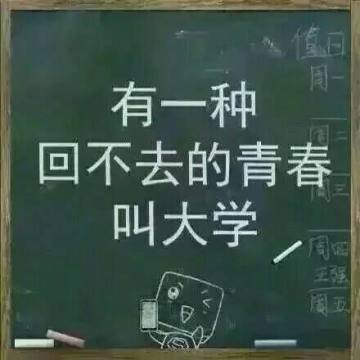 有一种
回不去的青春
叫大学
值日
周一
周二
周三
周四
王强
周五